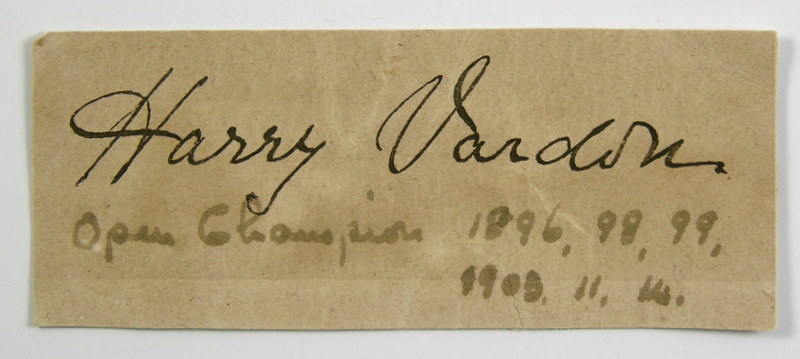 Harry Vardon.
Open Champion 1896, 98, 99,
1903. 11. 14.